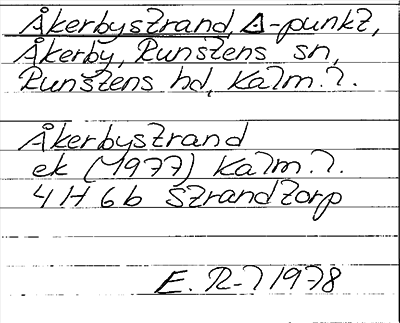 Åkerbystrand, Δ-punkt,
Åkerby, Runstens sn,
Runstens hd, Kalm. l.
Åkerbystrand
ek (1977) Kalm. l.
4 H 6 b Strandtorp
E. R-l 1978